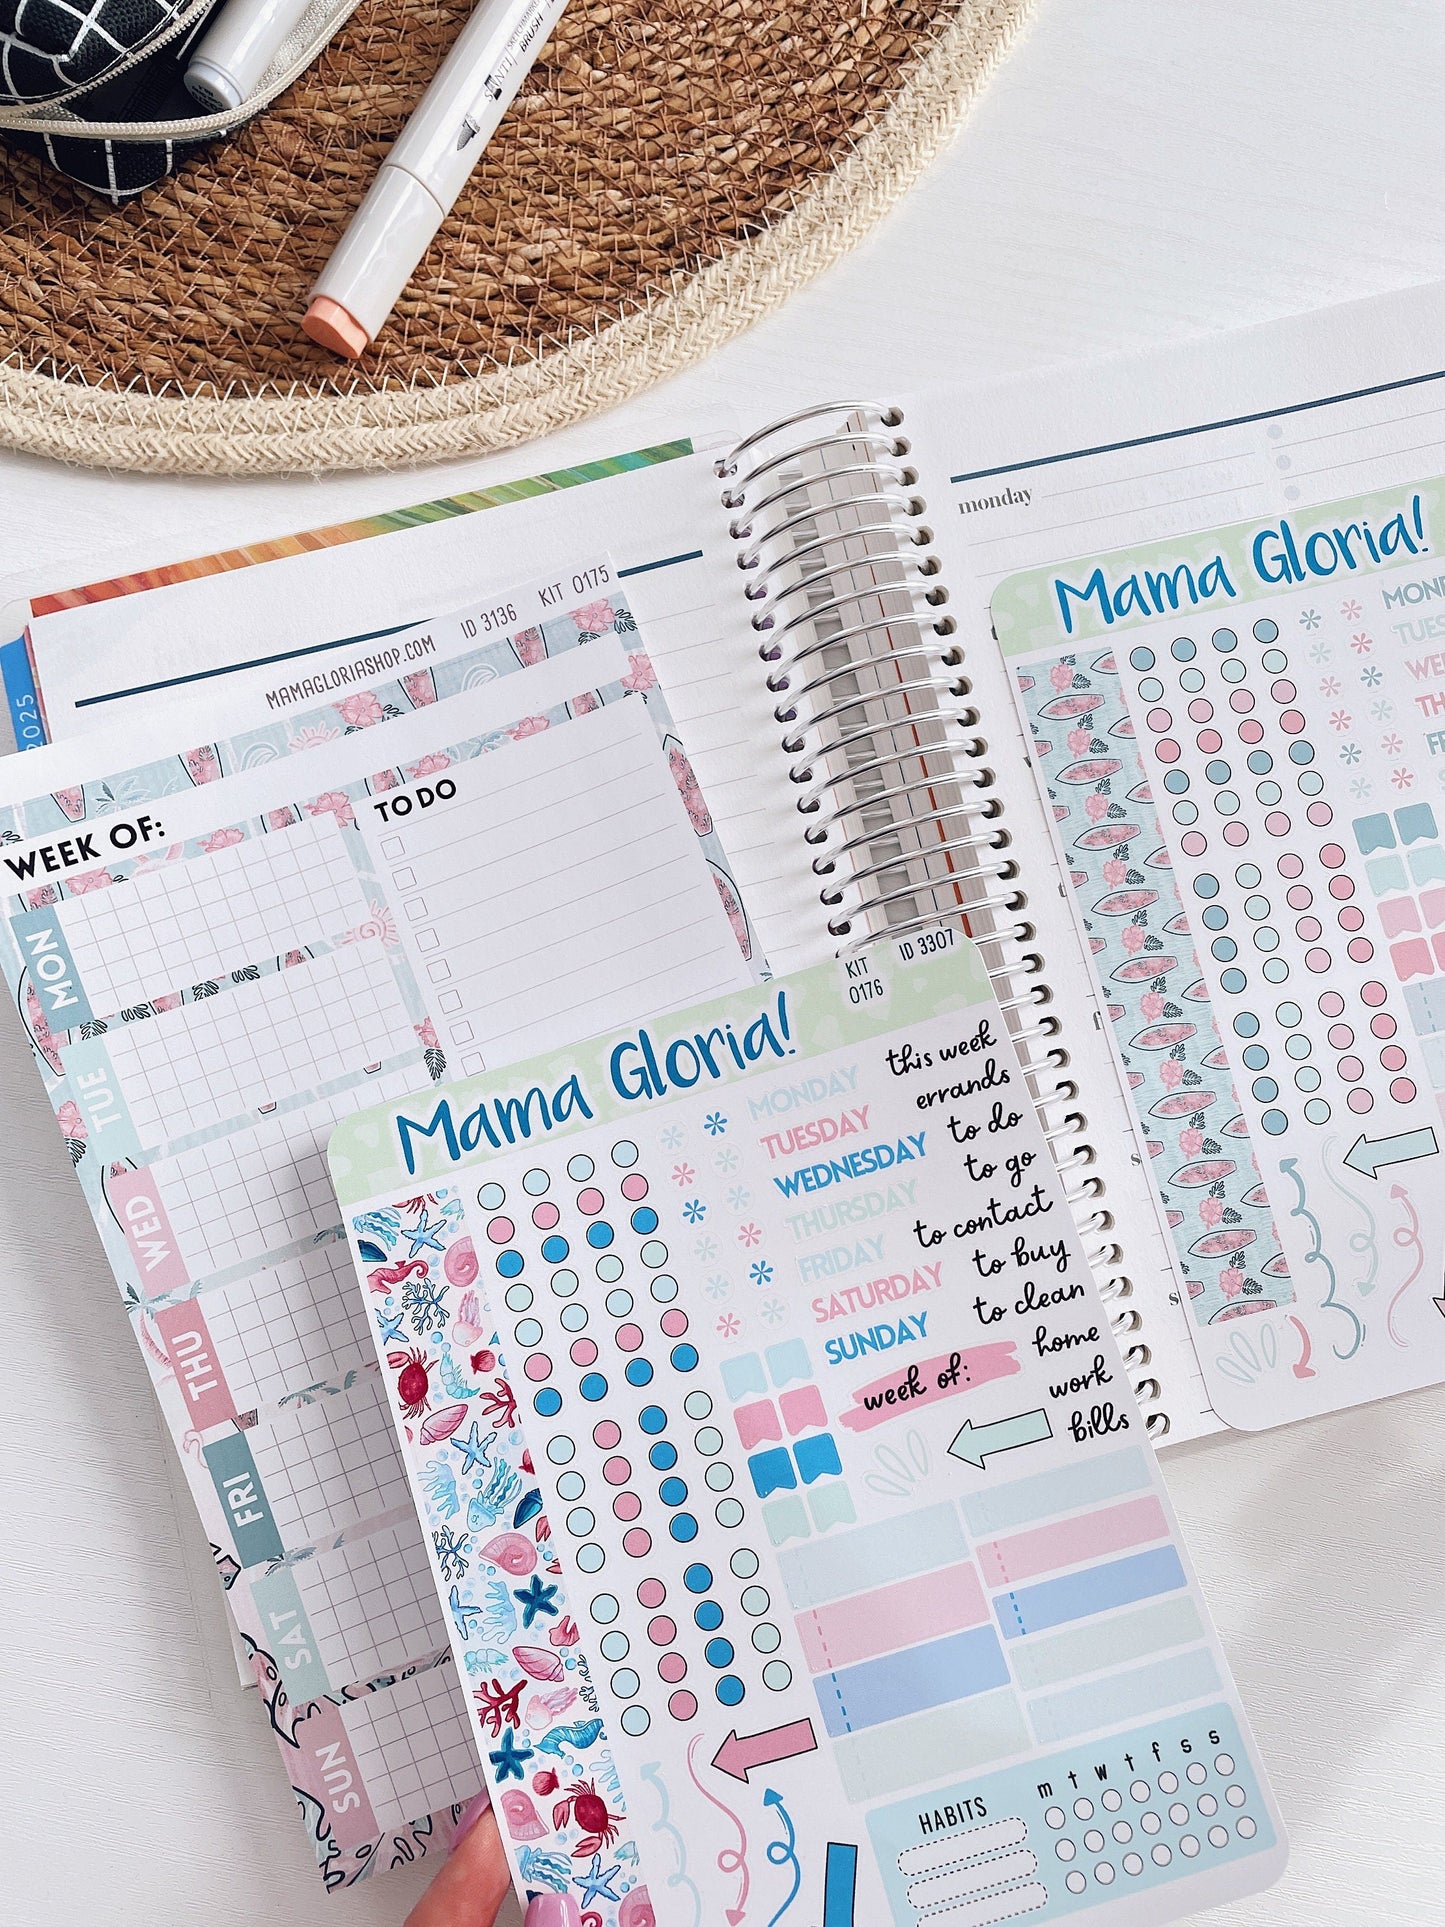 SKETCHMARKER
BRUSH
2025
MAMAGLORIASHOP.COM ID 3136 KIT 0175
WEEK OF:
TO DO
MON
TUE
WED
THU
FRI
SAT
SUN
monday
Mama Gloria!
KIT
0176
ID 3307
Mama Gloria!
MONDAY
TUESDAY
WEDNESDAY
THURSDAY
FRIDAY
SATURDAY
SUNDAY
this week
errands
to do
to go
to contact
to buy
to clean
home
work
bills
week of:
HABITS
m t w t f s s